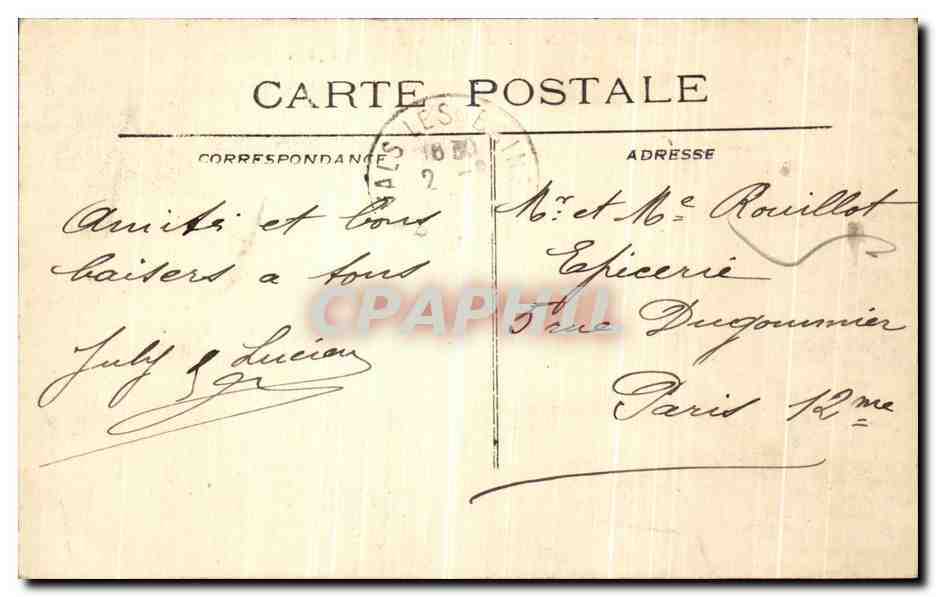 CARTE POSTALE
CORRESPONDANCE
ADRESSE
LES
18 30
2
Amitié et bons
baisers a tous
Lucien
Mr. et Me Rouillot
Epicerie
5 rue Dugommier
Paris 12me
CPAPHIL